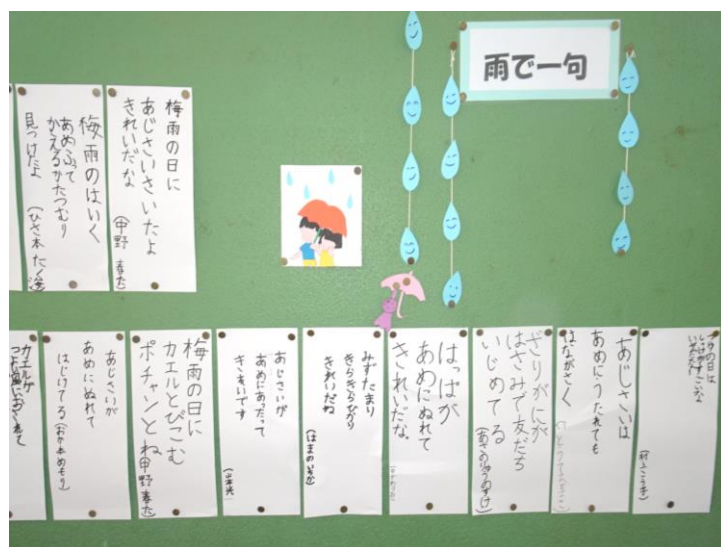 雨で一句
梅雨の日に
あじさいさいたよ
きれいだな
(中野
梅雨のはいく
あめふって
かえるかたつむり
見つけたよ
(ひさ本
つゆの日は
あじさいは
あめにうたれても
はながさく
ざりがにが
はさみで友だち
いじめてる
はっぱが
あめにぬれて
きれいだな。
みずたまり
きらきらひかり
きれいだね
あじさいが
あめにあたって
きれいです
梅雨の日に
カエルとびこむ
ポチャンとね
甲野
あじさいが
あめにぬれて
はじけてる
(おか本めもり)
カエルが